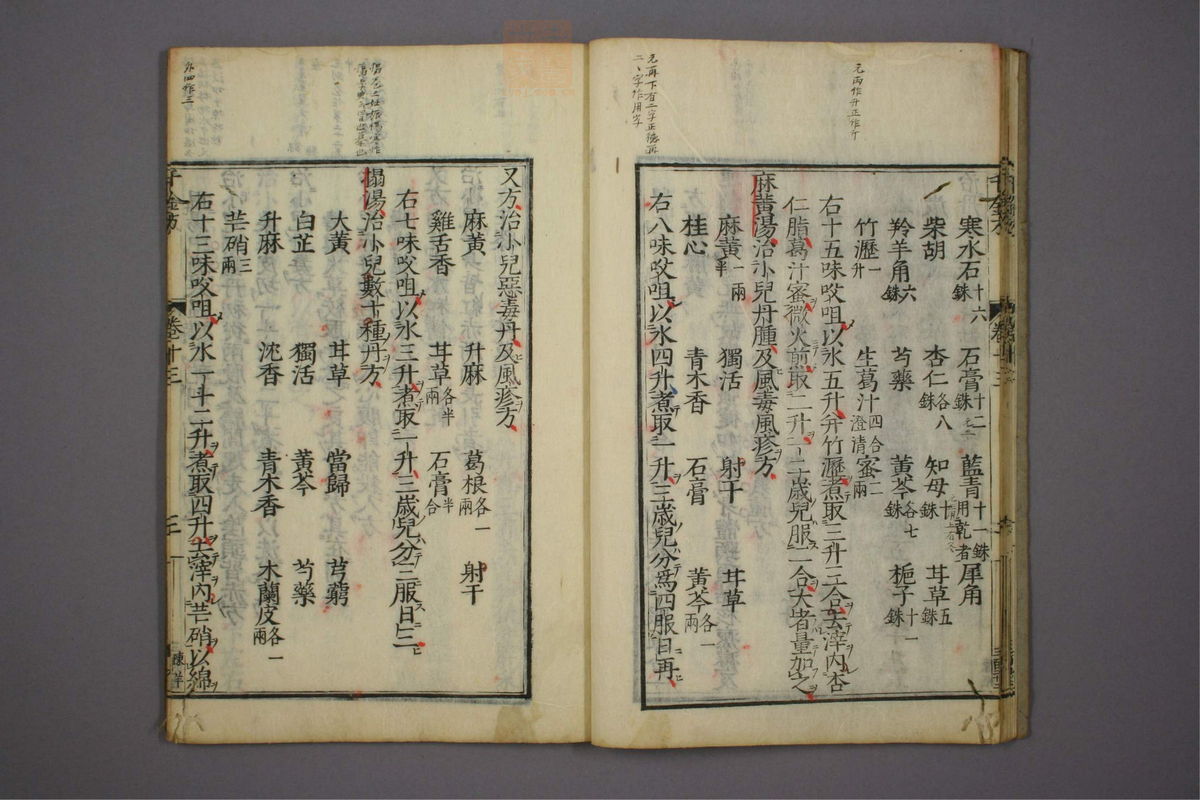 元兩作升正作斤
元再下有二字正德再
二、字作用字
寒水石十六銖 石膏十二銖 藍青十一銖用乾者 犀角
柴胡 杏仁各八銖 知母十銖 甘草五銖
羚羊角六銖 芍藥 黃芩各七銖 梔子十一銖
竹瀝一升 生葛汁四合澄清 蜜二兩
右十五味㕮咀以水五升并竹瀝煮取三升三合去滓內杏
仁脂葛汁蜜微火煎取二升一二歲兒服二合大者量加之
麻黃湯治小兒丹腫及風毒風疹方
麻黃一兩半 獨活 射干 甘草
桂心 青木香 石膏 黃芩各一兩
右八味㕮咀以水四升煮取一升三歲兒分爲四服日再
外四作三
又方治小兒惡毒丹及風疹方
麻黃 升麻 葛根各一兩 射干
雞舌香 甘草各半兩 石膏半合
右七味㕮咀以水三升煮取一升三歲兒分三服日三
搨湯治小兒數十種丹方
大黃 甘草 當歸 芎藭
白芷 獨活 黃芩 芍藥
升麻 沈香 青木香 木蘭皮各一兩
芒硝三兩
右十三味㕮咀以水一斗二升煮取四升去滓內芒硝以綿
千金方 卷十三